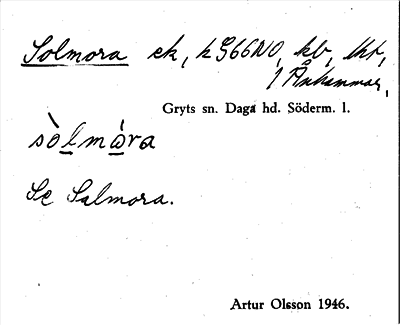 Solmora ek, k G66NO, kb, tkt,
1 Ånhammar,
Gryts sn. Daga hd. Söderm. l.
sòlmàra
Se Salmora.
Artur Olsson 1946.